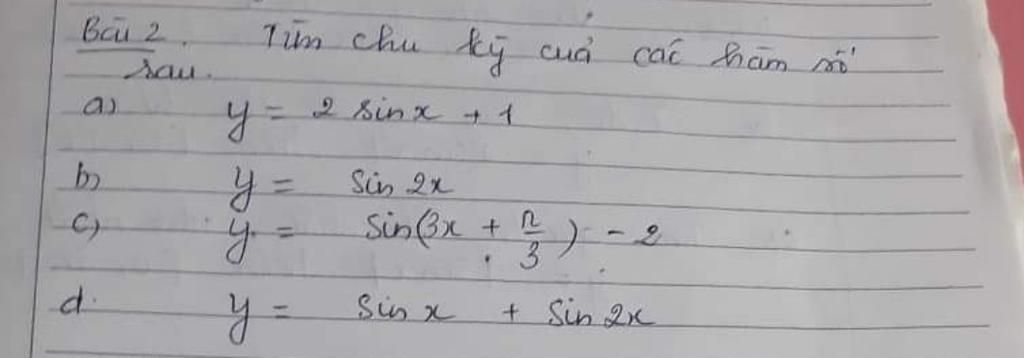 Bài 2. Tìm chu kỳ của các hàm số
sau.
a) y = 2 sin x + 1
b) y = sin 2x
c) y = sin(3x + π/3) - 2
d. y = sin x + sin 2x